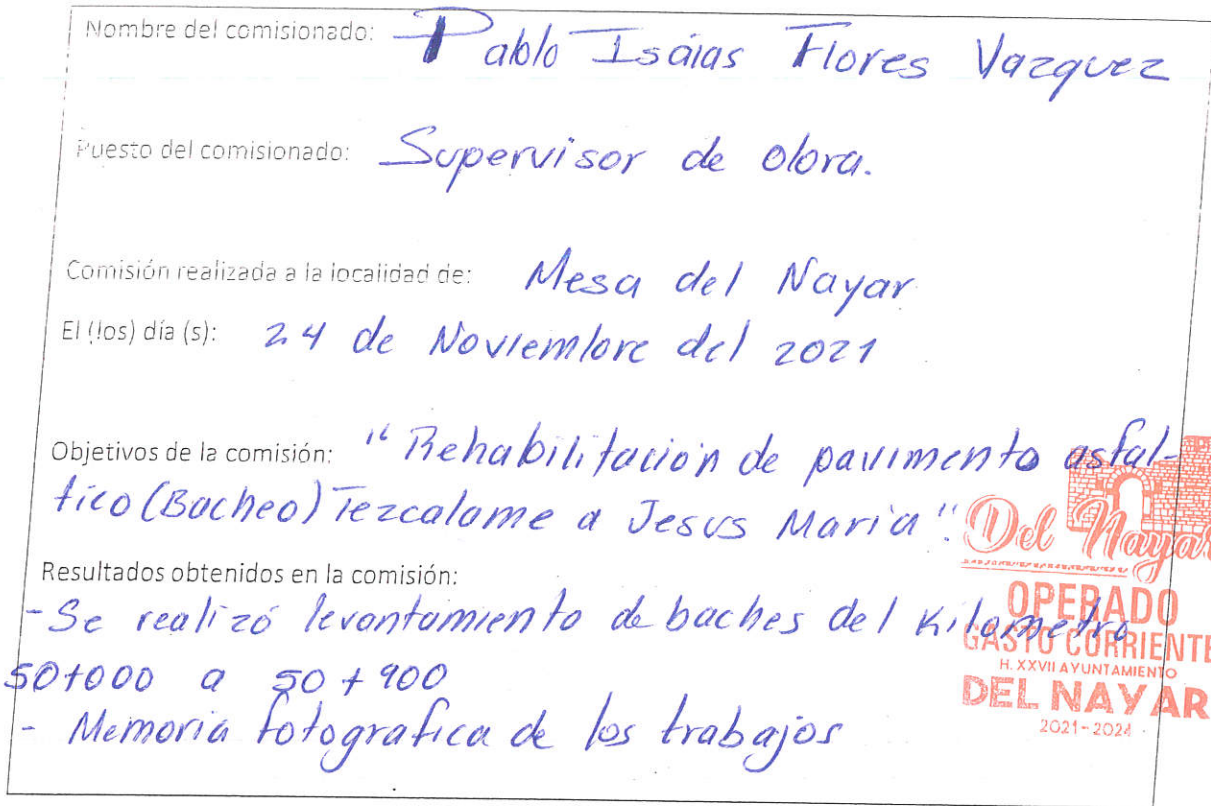 Nombre del comisionado: Pablo Isáias Flores Vazquez
Puesto del comisionado: Supervisor de obra.
Comisión realizada a la localidad de: Mesa del Nayar
El (los) día (s): 24 de Noviembre del 2021
Objetivos de la comisión: "Rehabilitación de pavimento asfal-
tico (Bacheo) Tezcalame a Jesus Maria".
Del Nayar
Resultados obtenidos en la comisión:
- Se realizó levantamiento de baches del Kilometro
50+000 a 50+900
- Memoria fotografica de los trabajos
OPERADO
GASTO CORRIENTE
H. XXVII AYUNTAMIENTO
DEL NAYAR
2021-2024